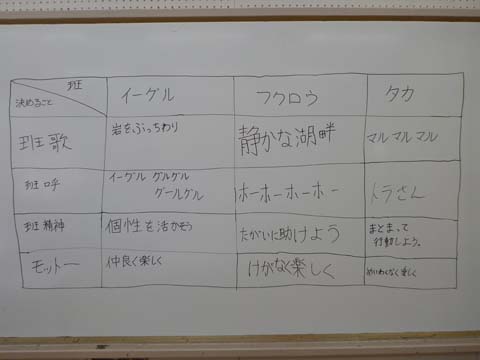 班
決めること
イーグル
フクロウ
タカ
班歌
岩をぶっちわり
静かな湖畔
マルマルマル
班呼
イーグル グルグル
グールグル
ホーホーホーホー
トラさん
班精神
個性を活かそう
たがいに助けよう
まとまって
行動しよう。
モットー
仲良く楽しく
けがなく楽しく
めいわくなく楽しく